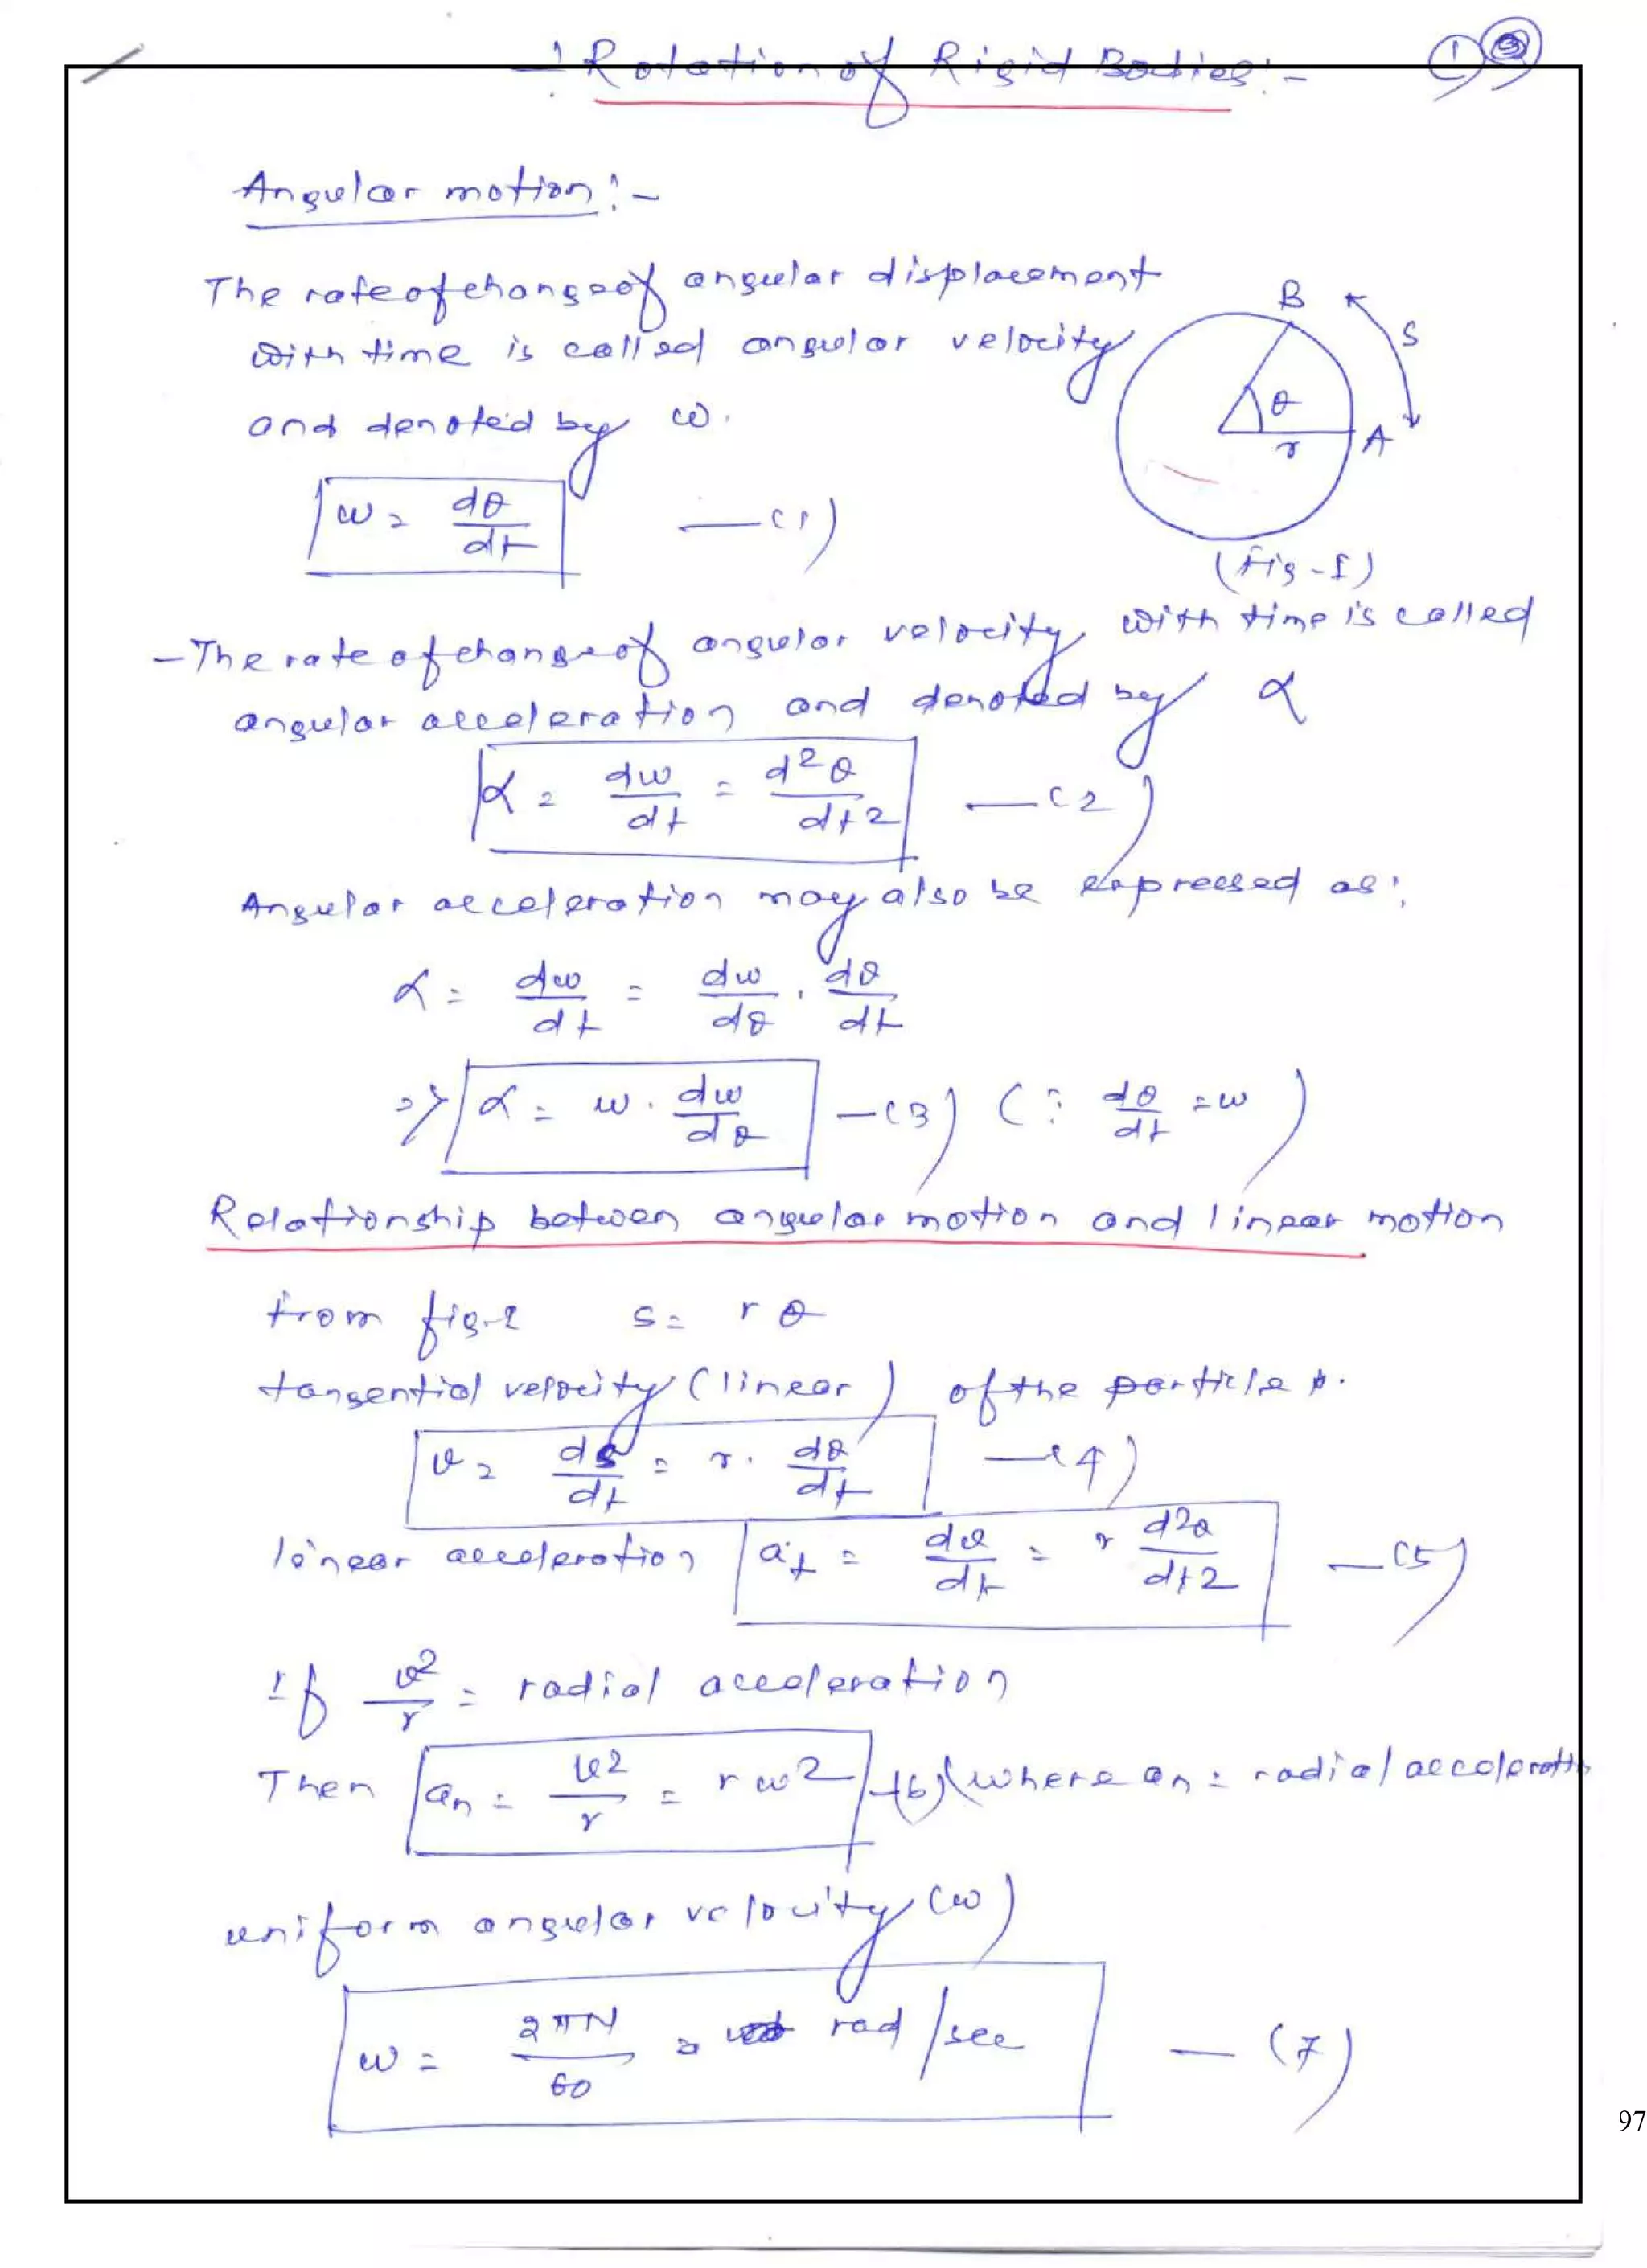 :Rotation of Rigid Bodies:-
Angular motion:-
The rate of change of angular displacement
with time is called angular velocity
and denoted by ω.
ω = dθ/dt —(1)
B
S
θ
r
A
(Fig-1)
-The rate of change of angular velocity with time is called
angular acceleration and denoted by α
α = dω/dt = d2θ/dt2 —(2)
Angular acceleration may also be expressed as:
α = dω/dt = dω/dθ . dθ/dt
=> α = ω . dω/dθ —(3) (∵ dθ/dt = ω)
Relationship between angular motion and linear motion
from fig-1 s = rθ
tangential velocity (linear) of the particle
v = ds/dt = r . dθ/dt —(4)
linear acceleration at = dv/dt = r d2θ/dt2 —(5)
If v2/r = radial acceleration
Then an = v2/r = rω2 —(6) (where an = radial acceleration
uniform angular velocity (ω)
ω = 2πN/60 = rad/sec —(7)
97